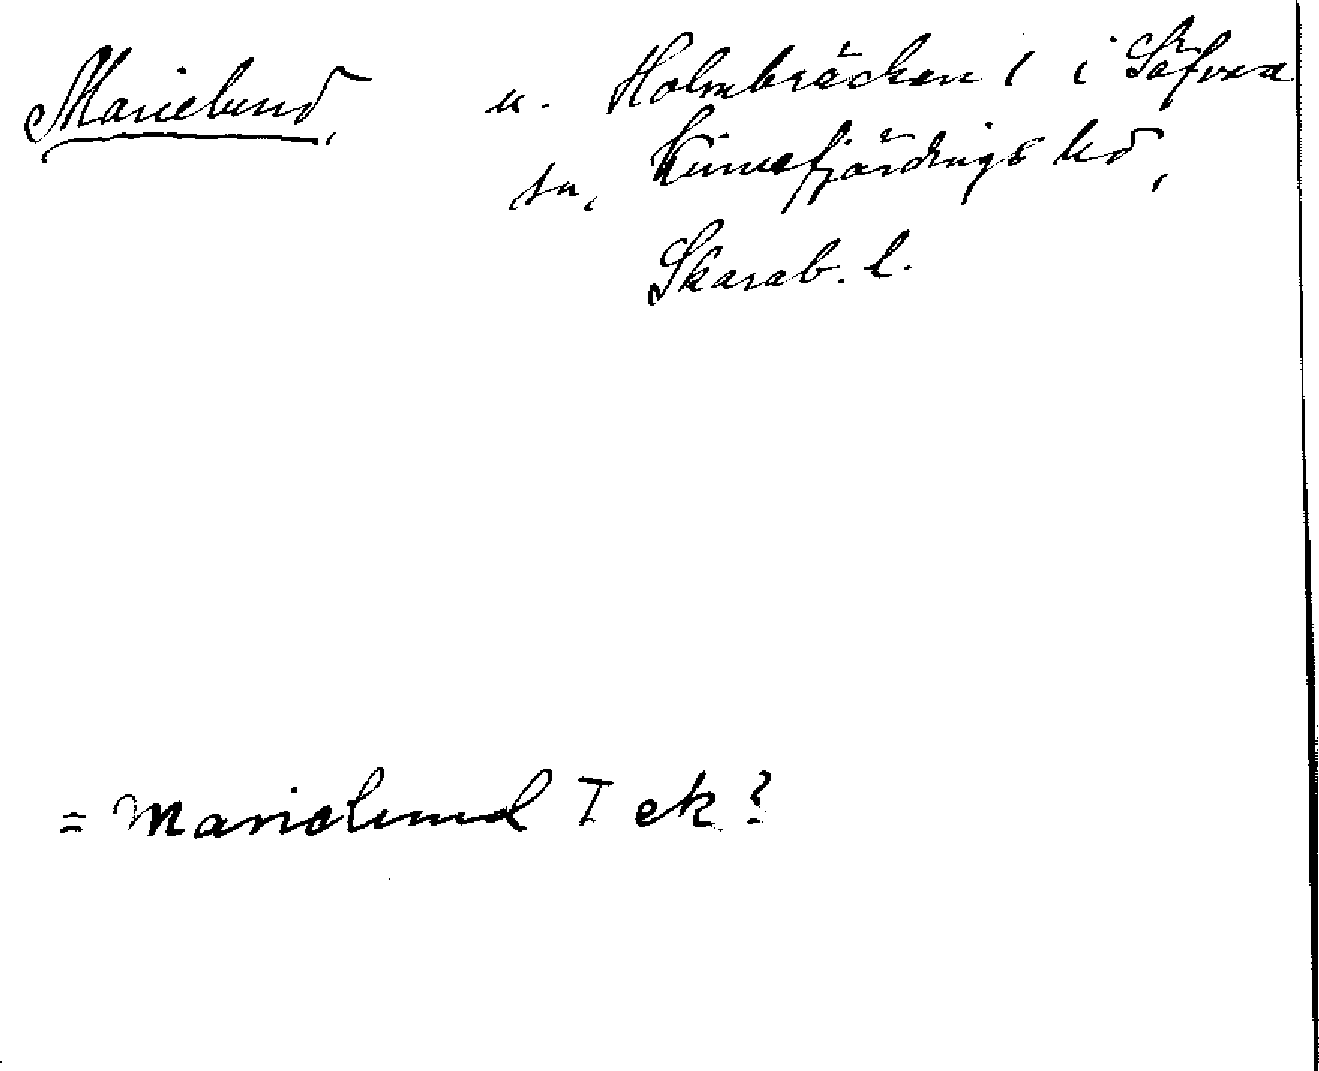 Marielund, u. Holmbräcken 1 i Säfvea
sn, Kinnefjärdings hd,
Skarab. l.
= Marielund T ek?